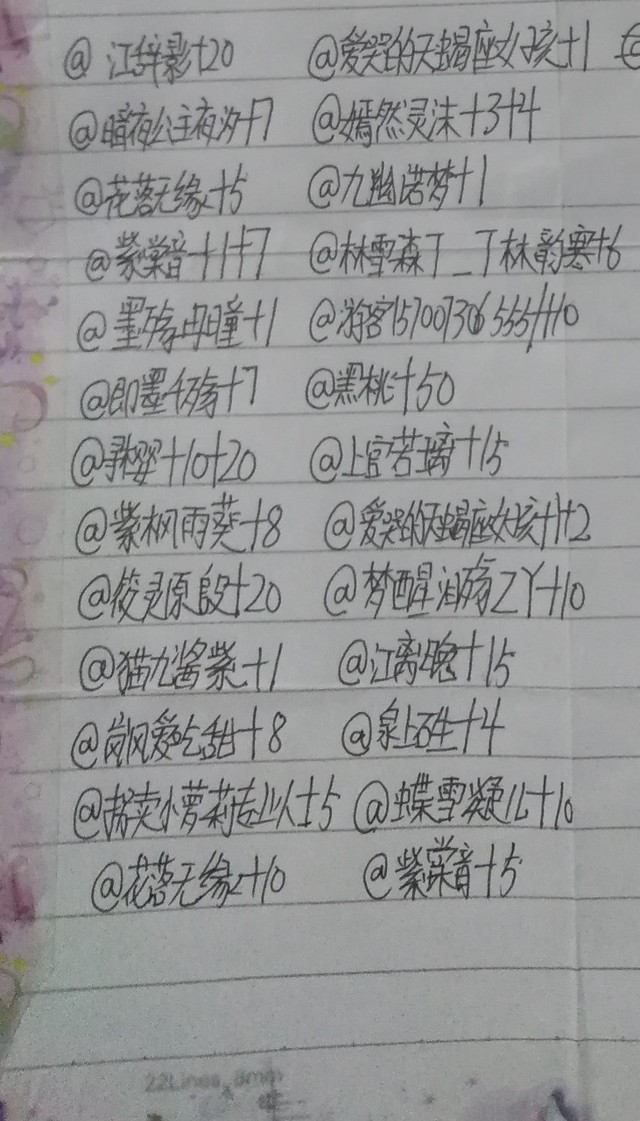 @江辞影+20 @爱哭的天蝎座女孩+1 @
@暗夜公主夜汐+7 @嫣然灵沫+3+4
@花落无缘+5 @九幽诺梦+1
@紫棠音+1+7 @林雪森T_T林韵寒+6
@墨殇冉瞳+1 @游客15700730 +10
@即墨千殇+7 @黑桃+50
+10+20 @上官若璃+15
@紫枫雨葵+8 @爱哭的天蝎座女孩+1+2
@筱灵原殿+20 @梦醒泪殇ZY+10
@猫九酱紫+1 @江离魂+15
@岚风爱吃甜+8 @泉上石生+4
@拐卖小萝莉专业人士5 @蝶雪凝儿+10
@花落无缘+10 @紫棠音+5
22Lines, 8mm